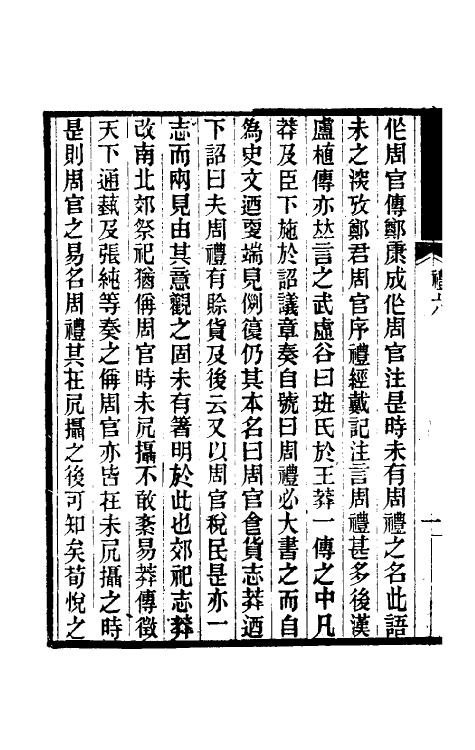 作周官傳鄭康成作周官注是時未有周禮之名此語
未之深攷鄭君周官序禮經戴記注言周禮甚多後漢
盧植傳亦竝言之武虛谷曰班氏於王莽一傳之中凡
莽及臣下施於詔議章奏自號曰周禮必大書之而自
爲史文迺更端見例復仍其本名曰周官食貨志莽迺
下詔曰夫周禮有賒貨及後云又以周官稅民是亦一
志而兩見由其意觀之固未有著明於此也郊祀志莽
改南北郊祭祀猶偁周官時未凥攝不敢紊易莽傳徵
天下通蓺及張純等奏之偁周官亦皆在未凥攝之時
是則周官之易名周禮其在凥攝之後可知矣荀悅之
禮六
一